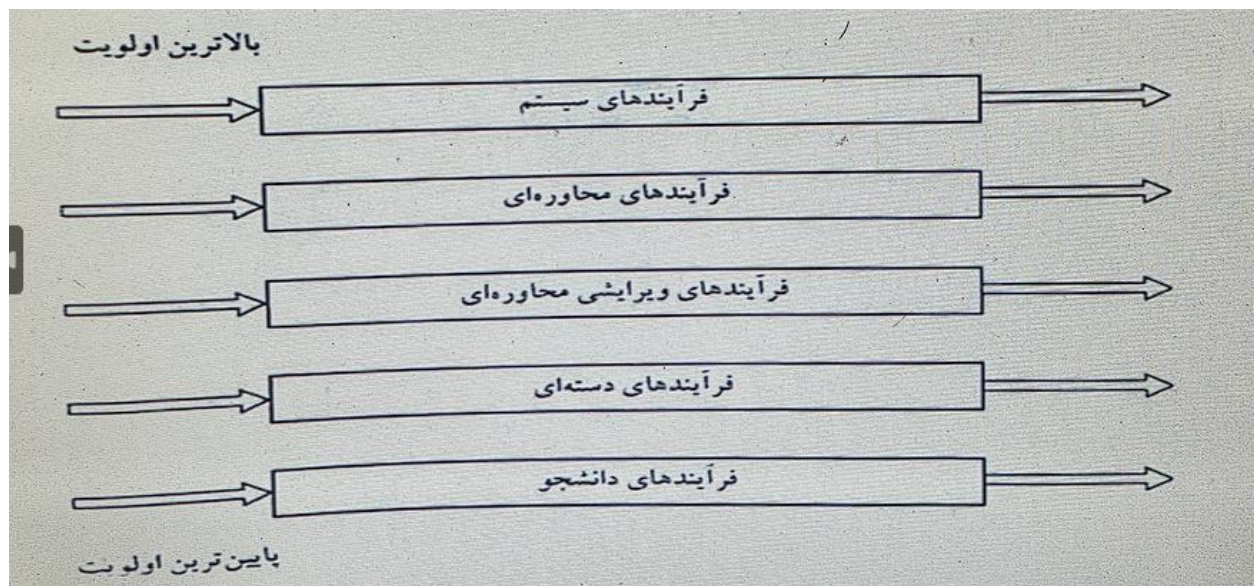 بالاترین اولویت
فرآیندهای سیستم
فرآیندهای محاوره‌ای
فرآیندهای ویرایشی محاوره‌ای
فرآیندهای دسته‌ای
فرآیندهای دانشجو
پایین‌ترین اولویت